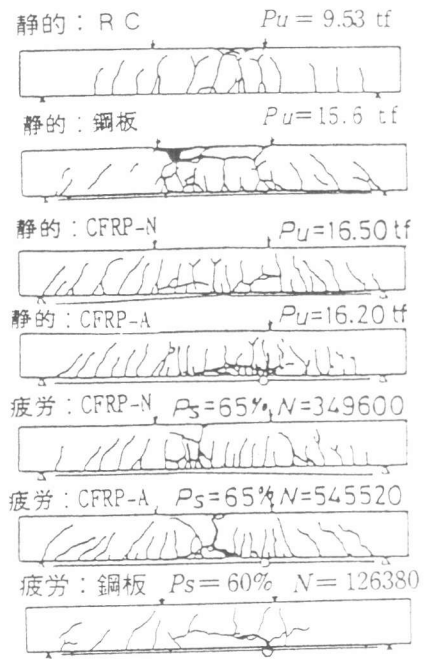 静的：RC Pu = 9.53 tf
静的：鋼板 Pu=15.6 tf
静的：CFRP-N Pu=16.50 tf
静的：CFRP-A Pu=16.20 tf
疲労：CFRP-N Ps=65% N=349600
疲労：CFRP-A Ps=65% N=545520
疲労：鋼板 Ps= 60% N= 126380